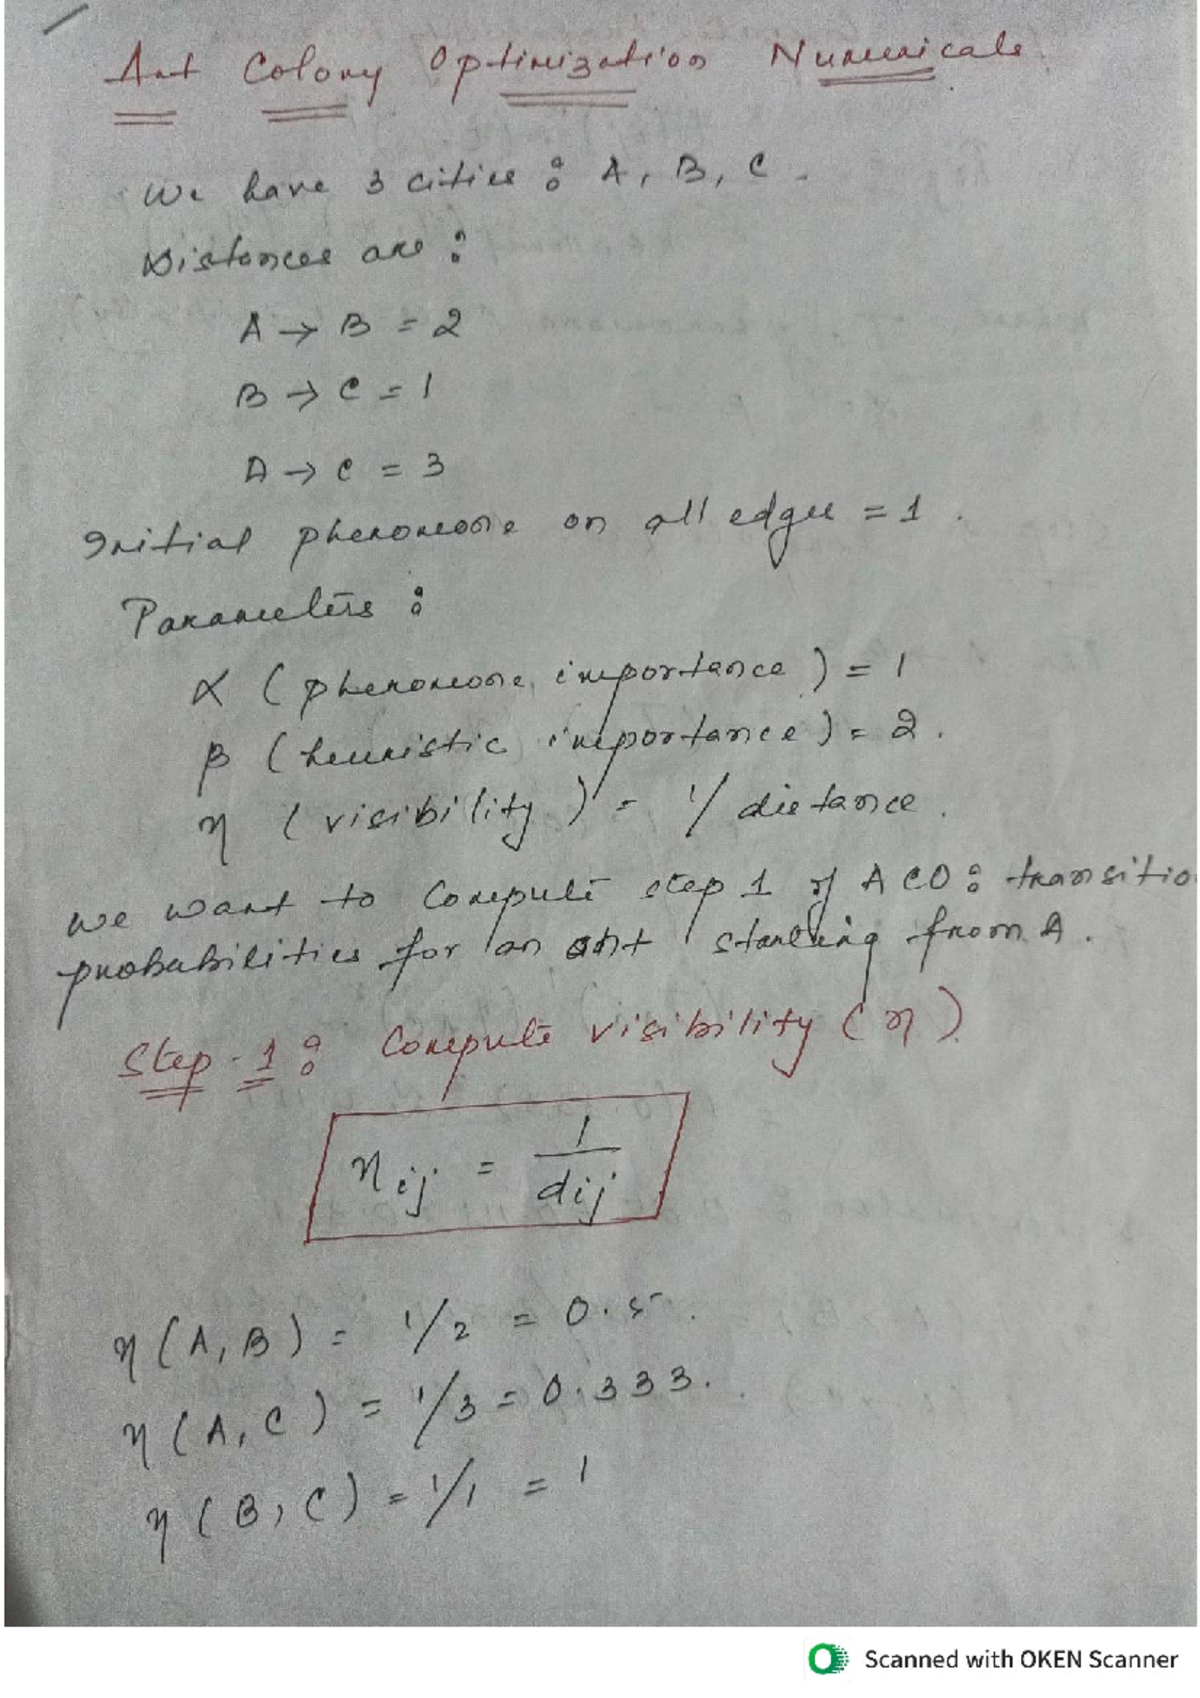 Ant Colony Optimization Numericals
We have 3 cities : A, B, C.
Distances are :
A → B = 2
B → C = 1
A → C = 3
Initial pheromone on all edges = 1.
Parameters :
α (pheromone importance) = 1
β (heuristic importance) = 2.
η (visibility) = 1/distance.
We want to compute step 1 of ACO : transitio
probabilities for an ant starting from A.
Step-1 : Compute visibility (η)
ηij = 1/dij
η(A,B) = 1/2 = 0.5.
η(A,C) = 1/3 = 0.333.
η(B,C) = 1/1 = 1
Scanned with OKEN Scanner